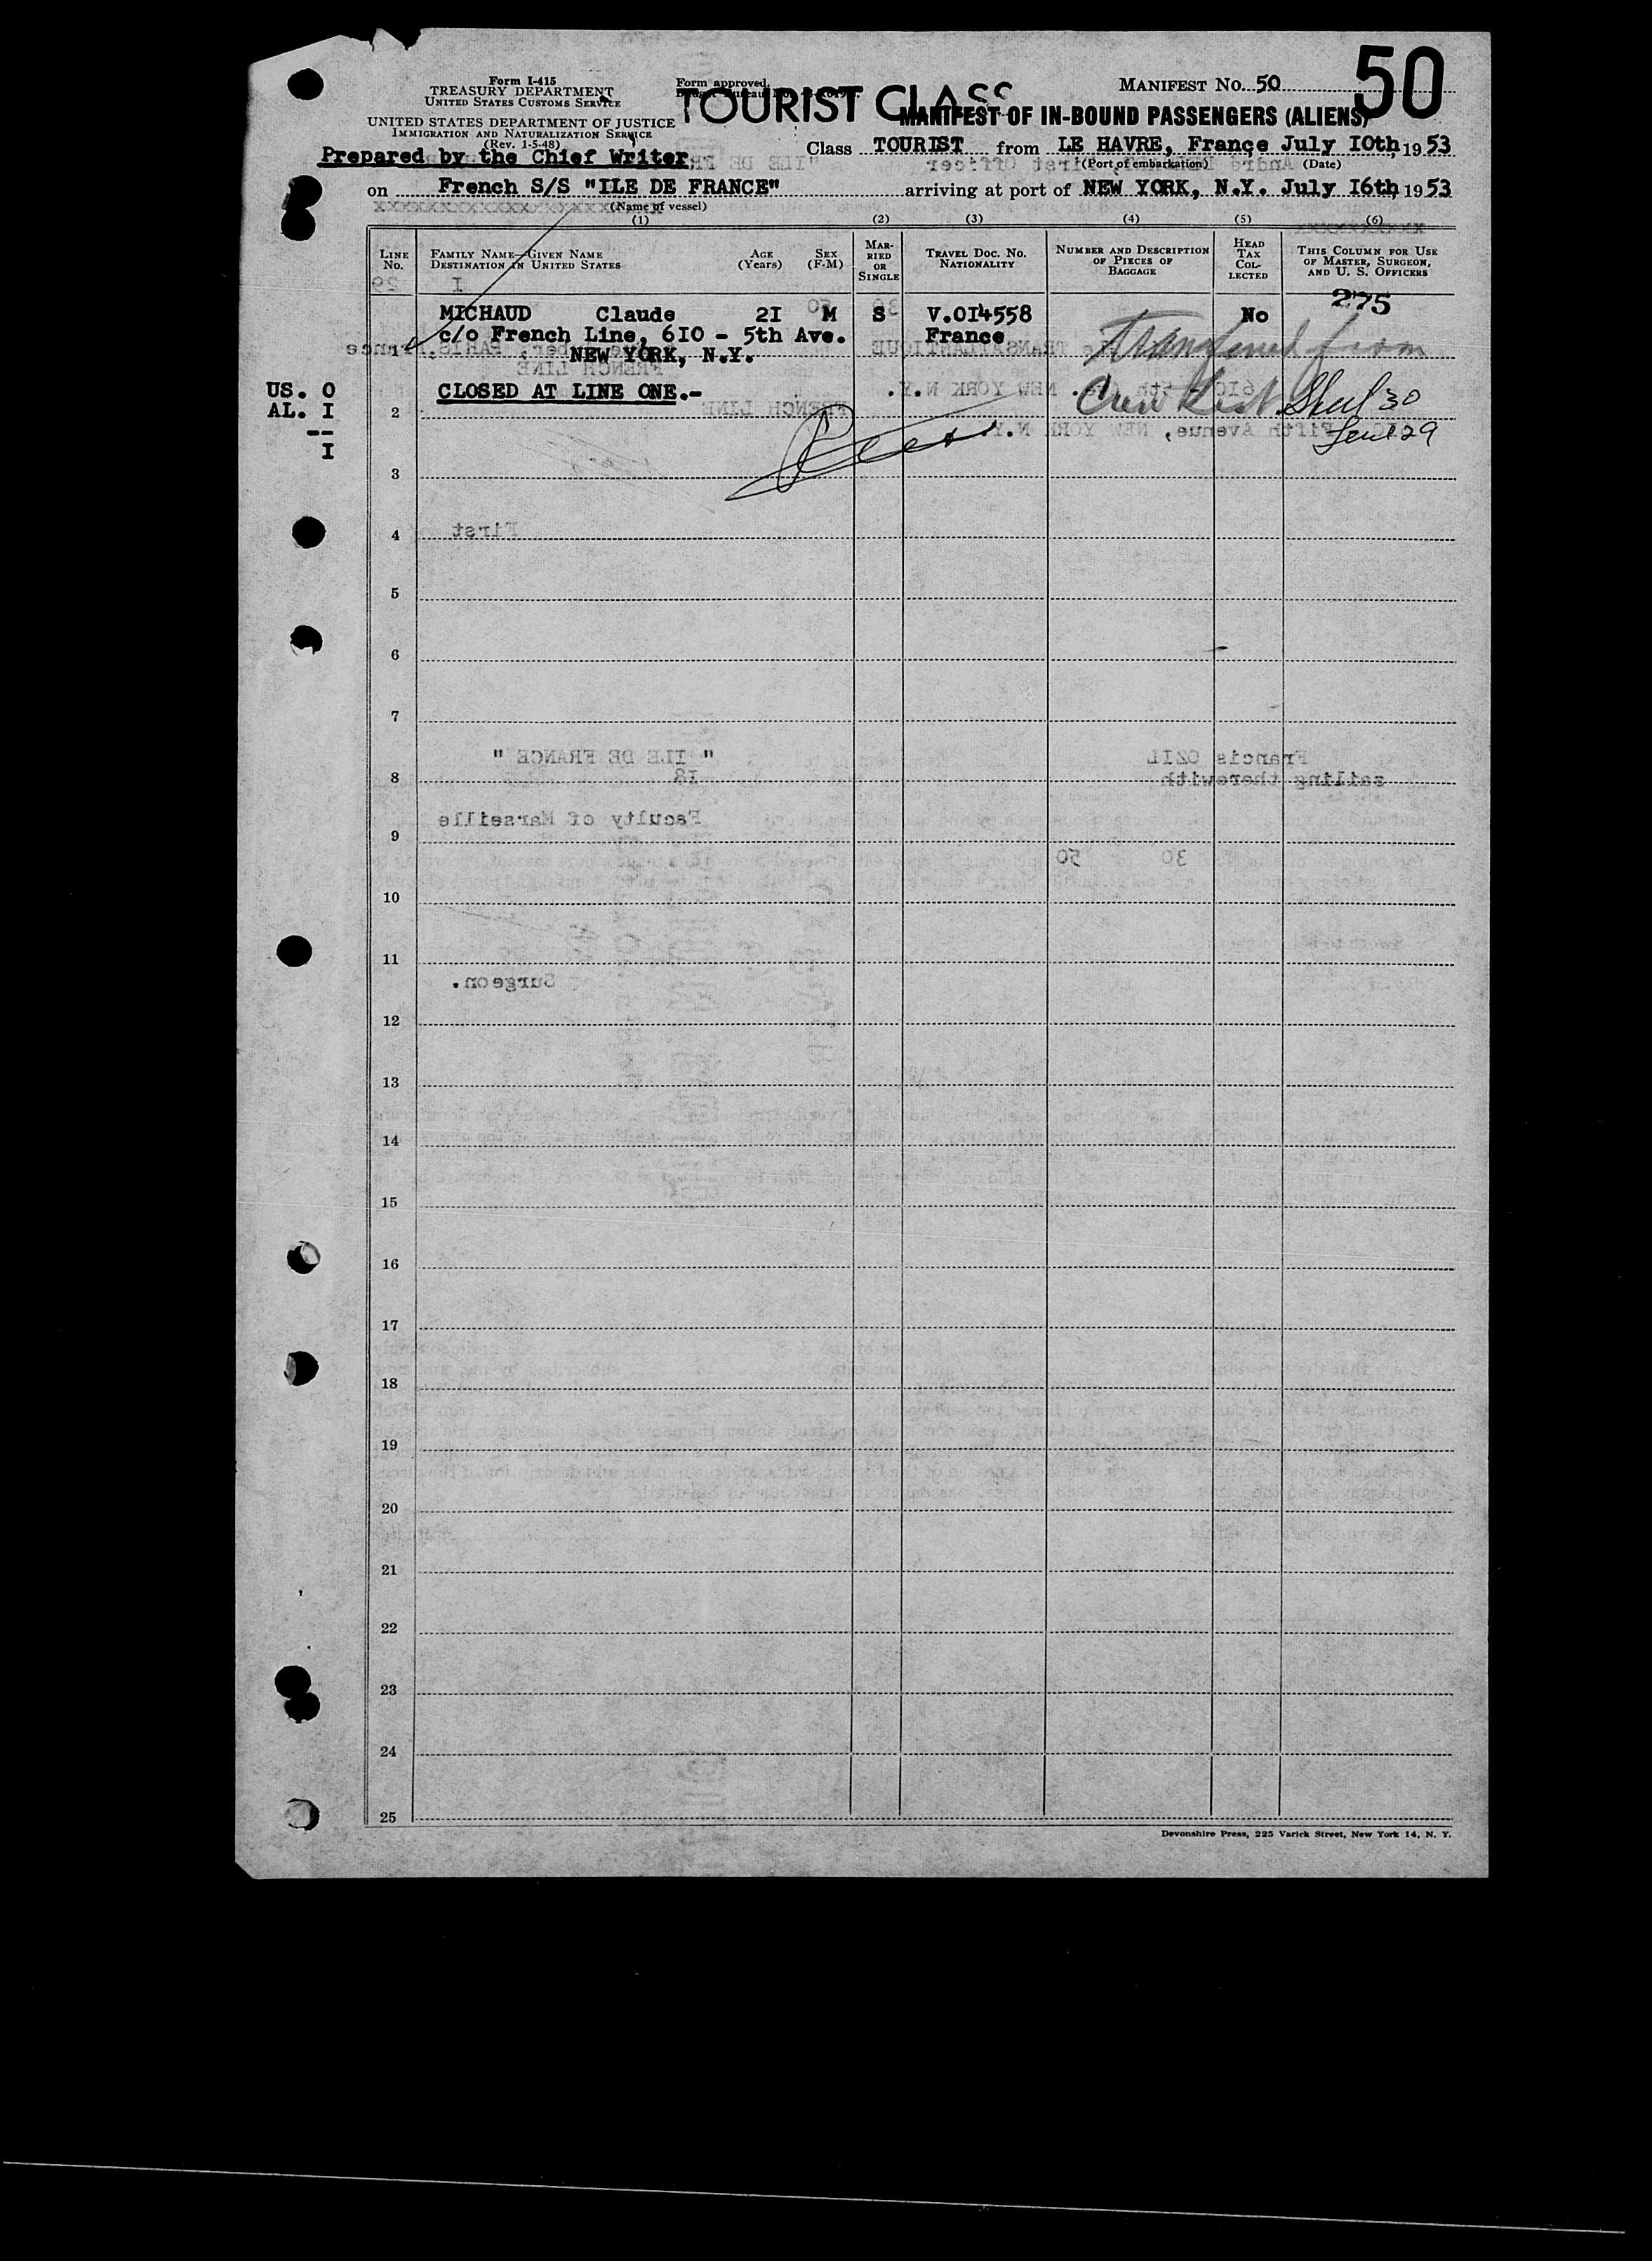 Form I-415
TREASURY DEPARTMENT
UNITED STATES CUSTOMS SERVICE
UNITED STATES DEPARTMENT OF JUSTICE
IMMIGRATION AND NATURALIZATION SERVICE
(Rev. 1-5-48)
Prepared by the Chief Writer
Form approved.
TOURIST CLASS
MANIFEST NO. 50
50
MANIFEST OF IN-BOUND PASSENGERS (ALIENS)
Class TOURIST from LE HAVRE, France July IOth, 1953
(Port of embarkation) (Date)
on French S/S "ILE DE FRANCE" arriving at port of NEW YORK, N.Y. July I6th, 1953
(Name of vessel)
(1) (2) (3) (4) (5) (6)
LINE NO.
FAMILY NAME—GIVEN NAME
DESTINATION IN UNITED STATES
AGE (Years)
SEX (F-M)
MARRIED OR SINGLE
TRAVEL DOC. NO.
NATIONALITY
NUMBER AND DESCRIPTION OF PIECES OF BAGGAGE
HEAD TAX COLLECTED
THIS COLUMN FOR USE OF MASTER, SURGEON, AND U. S. OFFICERS
275
MICHAUD Claude 2I M S V.OI4558 No
c/o French Line, 6IO - 5th Ave. France
1 NEW YORK, N.Y. Transferred from
US. O
AL. I
--
I
CLOSED AT LINE ONE.-
Crew List Sheet 30
2
Line 29
3
4
5
6
7
8
9
10
11
12
13
14
15
16
17
18
19
20
21
22
23
24
25
Devonshire Press, 225 Varick Street, New York 14, N. Y.